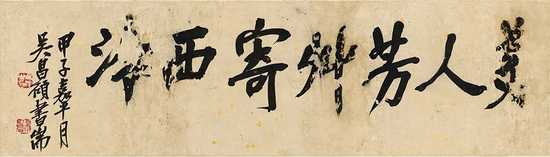 美人芳艸寄西泠
甲子嘉平月
吳昌碩書耑